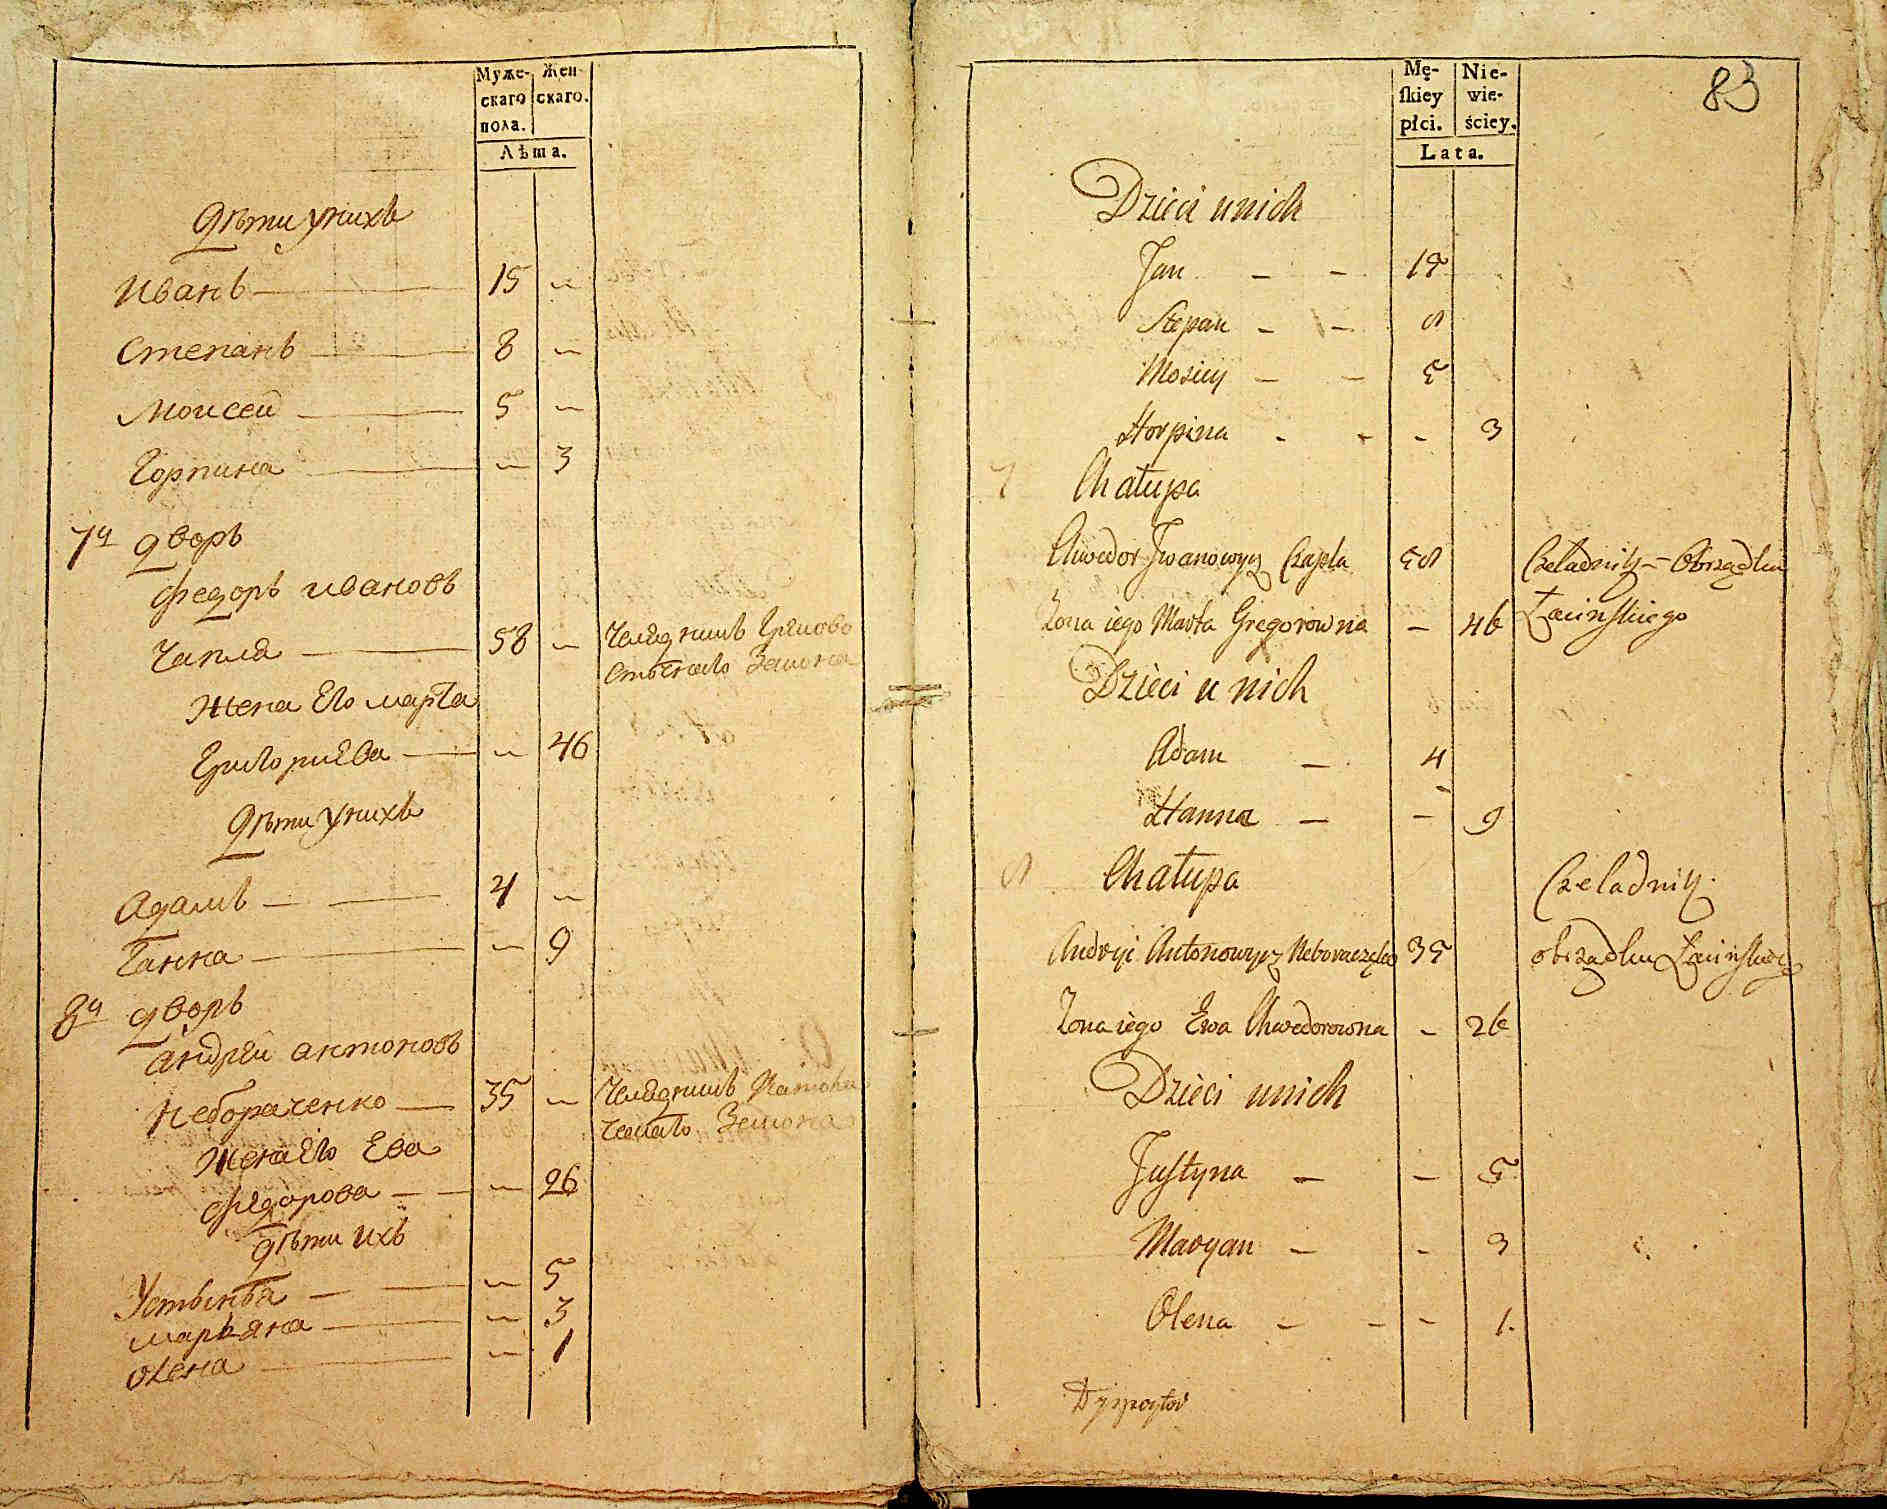 Муже- Жен
скаго скаго.
пола.
Лѣта.
Дѣти у нихъ
Иванъ 15 —
Степанъ 8 —
Моисей 5 —
Горпина — 3
7й дворъ
Федоръ Ивановъ
Чапля 58 — Челядникъ
Жена Его Марта
Григориева — 46
Дѣти у нихъ
Адамъ 4 —
Ганна — 9
8й дворъ
Андрей Антоновъ
Небораченко 35 — Челядникъ
Жена Его Ева
Федорова — 26
Дѣти ихъ
Устиньа — 5
Марьяна — 3
Олена — 1
83
Mę- Nie-
ſkiey wie-
płci. ściey.
Lata.
Dzieci u nich
Jan — — 15
Stepan — — 8
Mosiey — — 5
Horpina - - - 3
7 Chałupa
Chwedor Iwanowycz Czapla 58 Czeladnik — Obrządku
Żona iego Marta Gregorowna — 46 Łacinſkiego
Dzieci u nich
Adam — 4
Hanna — — 9
8 Chałupa Czeladnik.
Andryi Antonowycz Neboraczęko 35 obrządku Łacinſkiego
Żona iego Ewa Chwedorowna - 26
Dzieci u nich
Juſtyna — — 5
Maryan — - 3
Olena - - - 1.